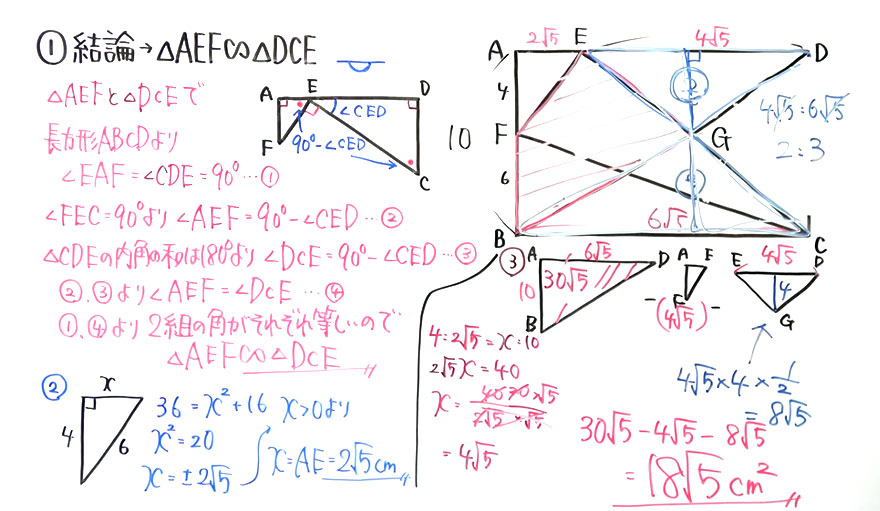 ①結論→△AEF∽△DCE
△AEFと△DCEで
長方形ABCDより
∠EAF=∠CDE=90°…①
∠FEC=90°より∠AEF=90°-∠CED…②
△CDEの内角の和は180°より∠DCE=90°-∠CED…③
②,③より∠AEF=∠DCE…④
①,④より2組の角がそれぞれ等しいので
△AEF∽△DCE
A E D
∠CED
F 90°-∠CED
C
②
x
4 6
36=x²+16 x>0より
x²=20
x=±2√5
x=AE=2√5cm
A 2√5 E 4√5 D
4
10 F G
6
B 6√5 C
4√5:6√5
2:3
③
A 6√5 D
10 30√5
B
- A E F (4√5) -
E 4√5 D
4
G
4:2√5=x:10
2√5x=40
x=40 20×√5
2√5×√5
=4√5
4√5×4×1/2
=8√5
30√5-4√5-8√5
=18√5cm²